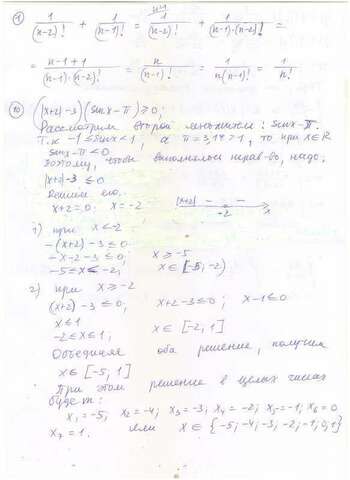 ① 1/(n-2)! + 1/(n-1)! = 1/(n-2)! + 1/((n-1)·(n-2)!) =
= (n-1+1)/((n-1)·(n-2)!) = n/(n-1)! = 1/(n(n-1)!) = 1/n!
⑩ (|x+2|-3)(sinx-π) ≥ 0;
Рассмотрим второй множитель: sinx-π.
Т.к -1≤sinx<1, а π=3,14>1, то при x∈R
sinx-π<0
Поэтому, чтобы выполнялось нерав-во, надо:
|x+2|-3 ≤ 0
Решаем его.
x+2=0. x=-2 |x+2| - - -2 x
1) при x<-2
-(x+2)-3≤0
-x-2-3≤0; x≥-5
-5≤x<-2; x∈[-5;-2)
2) при x≥-2
(x+2)-3≤0; x+2-3≤0; x-1≤0
x≤1
-2≤x≤1; x∈[-2,1]
Объединяе оба решение, получим
x∈[-5,1]
При этом решение в целых числах
будет:
x₁=-5, x₂=-4; x₃=-3; x₄=-2; x₅=-1; x₆=0
x₇=1. или x∈{-5;-4;-3;-2;-1;0;1}